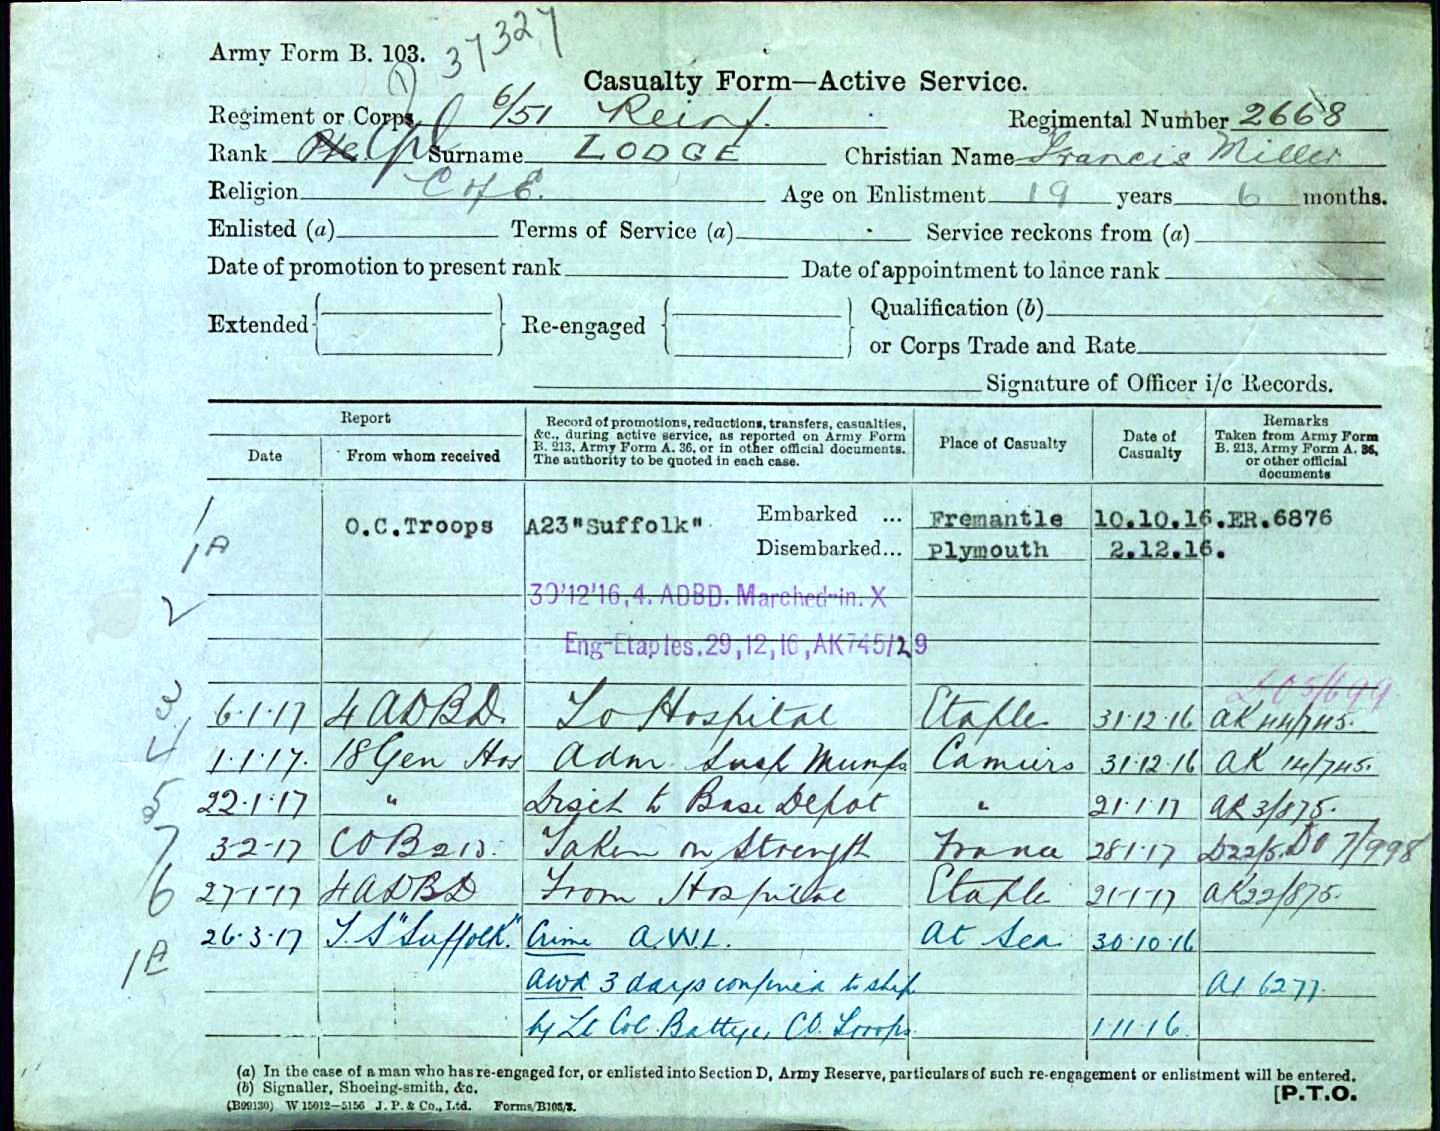 Army Form B. 103.
37327
Casualty Form—Active Service.
Regiment or Corps 6/51 Reinf. Regimental Number 2668
Rank Pte Cpl Surname LODGE Christian Name Francis Miller
Religion C of E. Age on Enlistment 19 years 6 months.
Enlisted (a) Terms of Service (a) Service reckons from (a)
Date of promotion to present rank Date of appointment to lance rank
Extended Re-engaged Qualification (b)
or Corps Trade and Rate
Signature of Officer i/c Records.
Report
Date From whom received
Record of promotions, reductions, transfers, casualties,
&c., during active service, as reported on Army Form
B. 213, Army Form A. 36, or in other official documents.
The authority to be quoted in each case.
Place of Casualty
Date of
Casualty
Remarks
Taken from Army Form
B. 213, Army Form A. 36,
or other official
documents
1
1A O.C.Troops A23 "Suffolk" Embarked ... Fremantle 10.10.16. ER.6876
Disembarked... Plymouth 2.12.16.
2 30'12'16,4. ADBD. Marched-in. X
Eng-Etaples.29,12,16,AK745/29
3 6·1·17 4 ADBD. To Hospital Etaple 31·12·16 AK 44/745.
4 1·1·17. 18 Gen Hos Adm Susp Mumps Camiers 31·12·16 AK 14/745.
5 22·1·17 " Disch to Base Depot " 21·1·17 AK 3/875.
7 3·2·17 CO B213. Taken on Strength France 28·1·17 D22/5. DO 7/998
6 27·1·17 4 ADBD From Hospital Etaple 21·1·17 AK22/875.
1A 26·3·17 T.S "Suffolk." Crime A.W.L. At Sea 30·10·16
Awd 3 days confined to ship A1 6277.
by Lt Col. Battye, CO. Troops 1·11·16.
(a) In the case of a man who has re-engaged for, or enlisted into Section D, Army Reserve, particulars of such re-engagement or enlistment will be entered.
(b) Signaller, Shoeing-smith, &c.
(B99130) W 15012—5156 J. P. & Co., Ltd. Forms/B103/3.
[P.T.O.